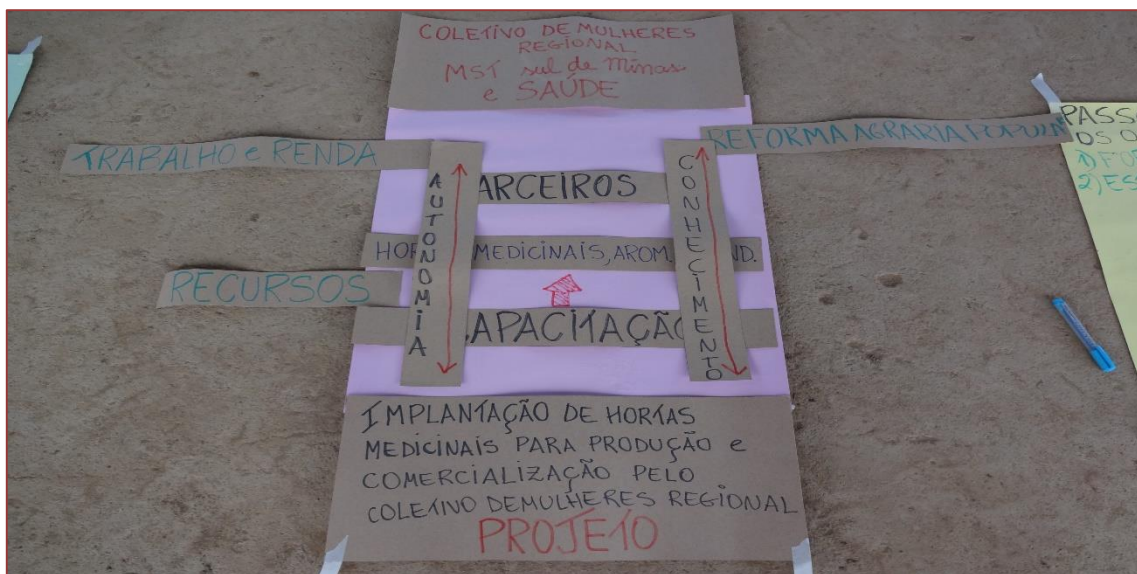 COLETIVO DE MULHERES
REGIONAL
MST sul de Minas
e SAÚDE
TRABALHO e RENDA
REFORMA AGRARIA POPULA
AUTONOMIA
CONHECIMENTO
ARCEIROS
HOR MEDICINAIS, AROM. ND.
RECURSOS
CAPACITAÇÃO
IMPLANTAÇÃO DE HORTAS
MEDICINAIS PARA PRODUÇÃO e
COMERCIALIZAÇÃO PELO
COLETIVO DEMULHERES REGIONAL
PROJETO
PASS
OS O
1) FU
2) ES